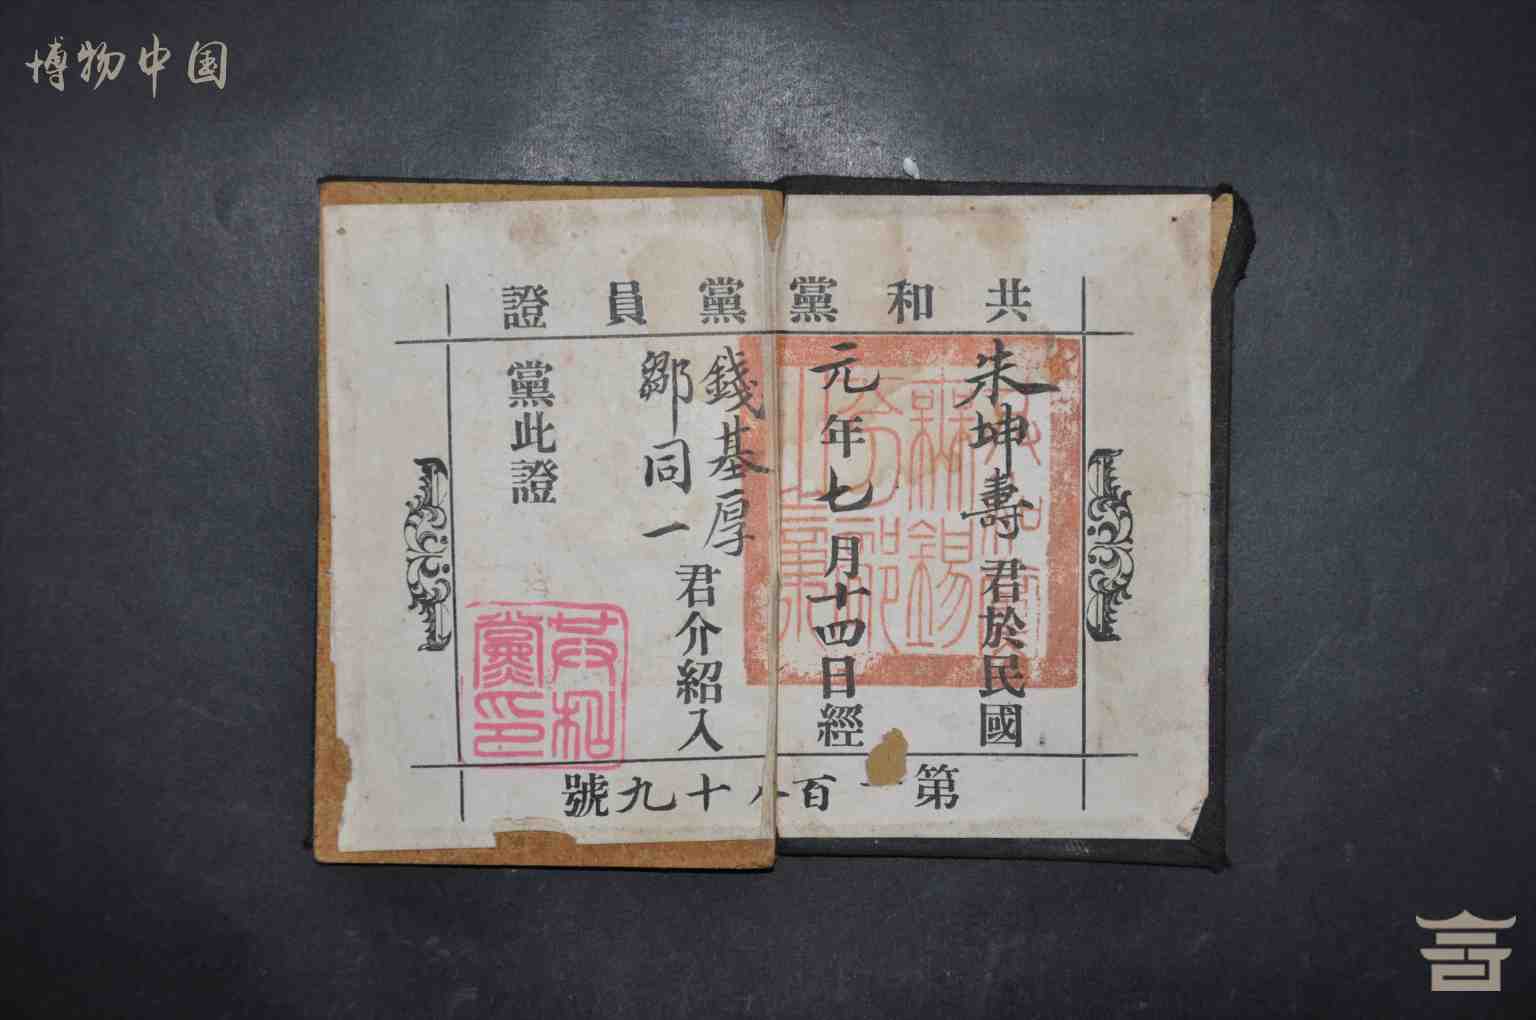 博物中国
共和黨黨員證
朱坤壽君於民國
元年七月十四日經
錢基厚
鄒同一
君介紹入
黨此證
第一百八十九號
共和
黨印